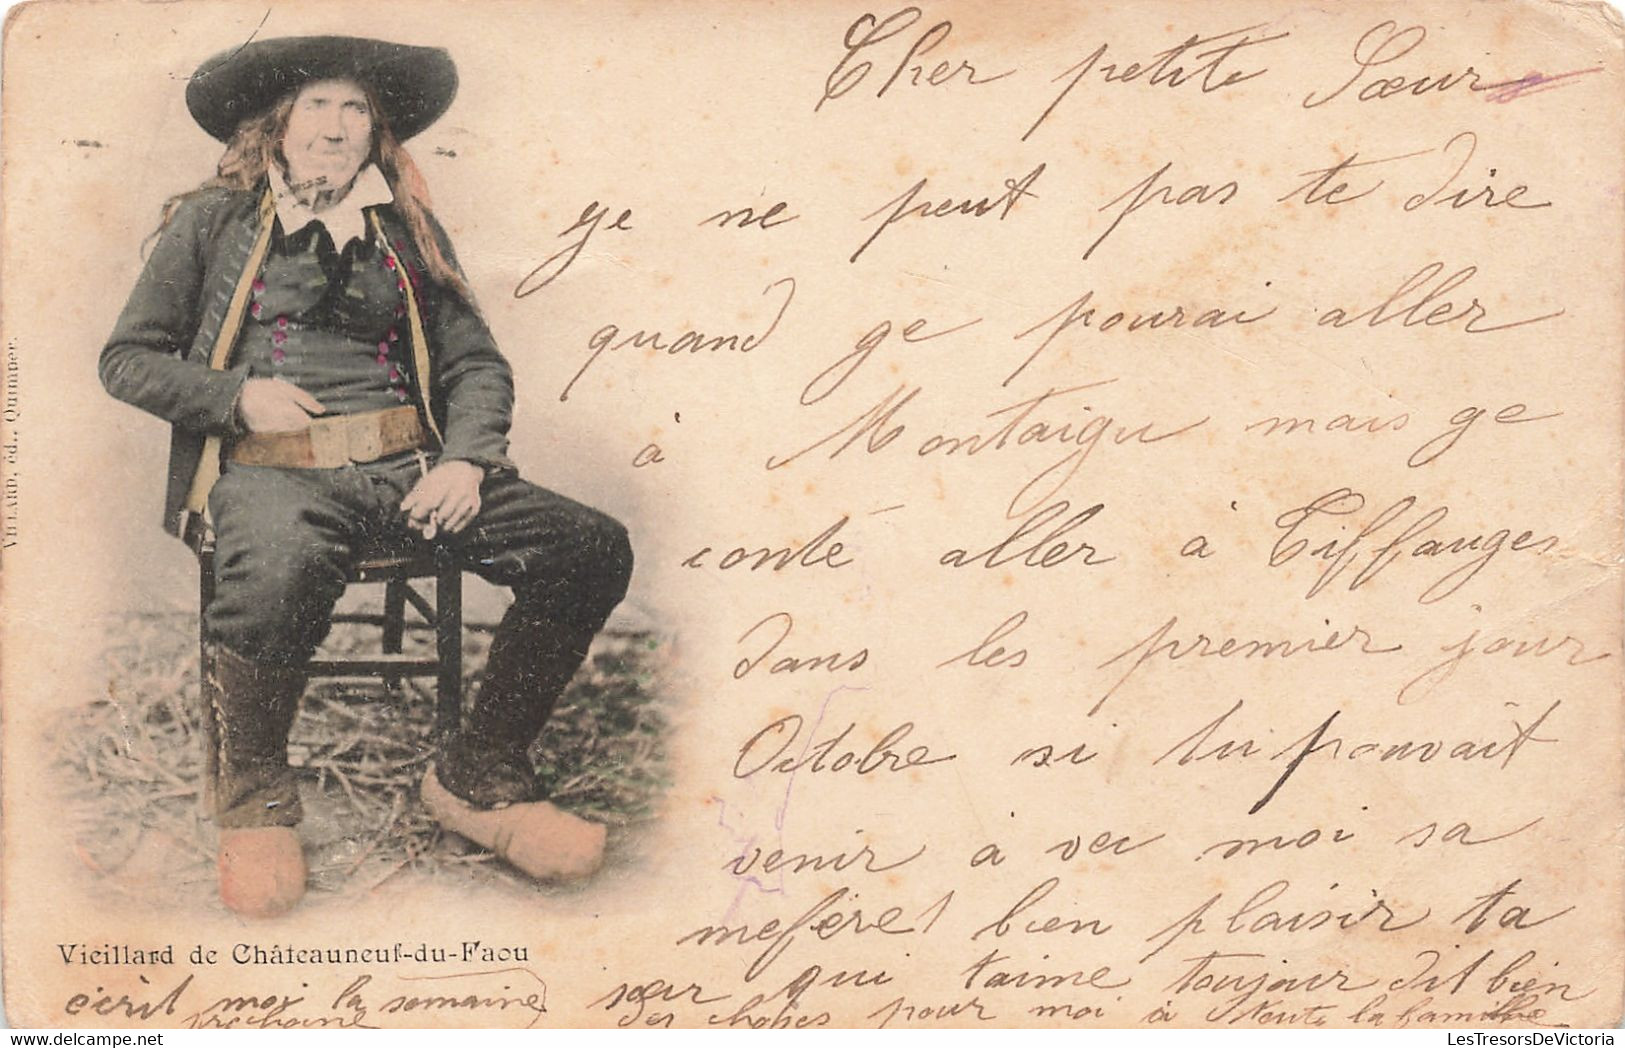 Cher petite Sœur
ge ne peut pas te dire
quand ge pourai aller
à Montaigu mais ge
conte aller à Tiffauges
dans les premier jour
Octobre si tu pouvait
venir à vec moi sa
meferet bien plaisir ta
sœur qui taime toujour dit bien
des choses pour moi à toute la famille
écrit moi la semaine
prochaine
Vieillard de Châteauneuf-du-Faou
VILLARD, éd., Quimper.
LesTresorsDeVictoria